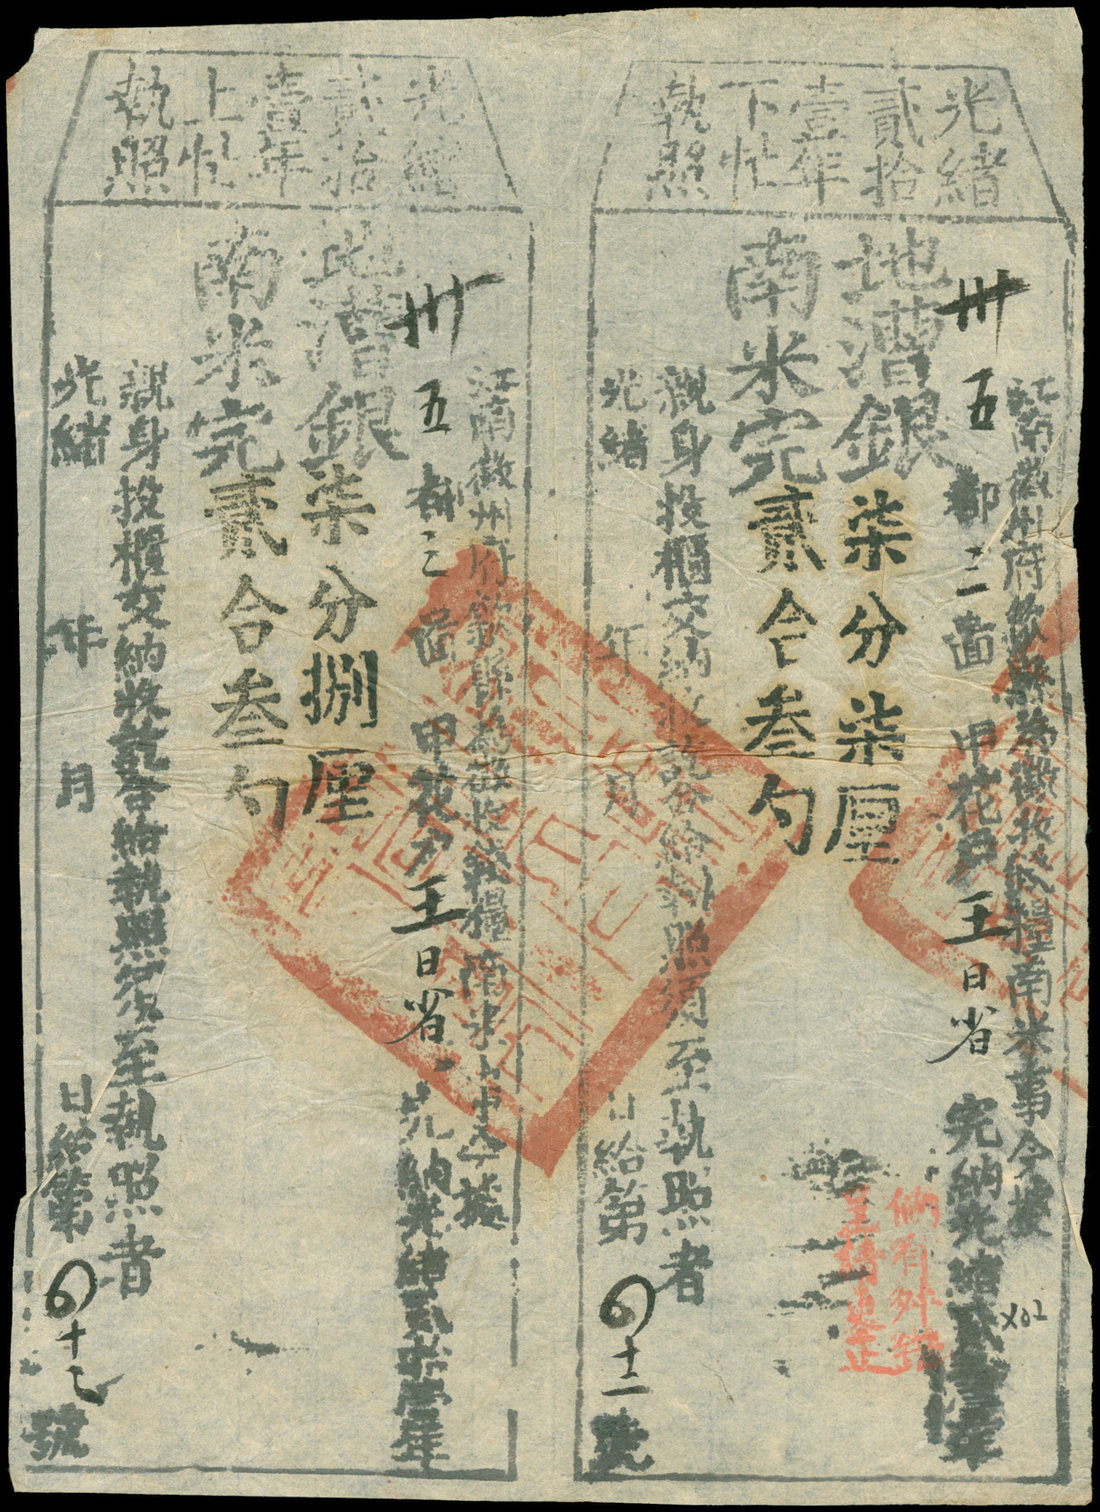 光緒
貳拾
壹年
下忙
執照
江南徽州府歙縣為徵收錢糧南米事今據
卅五都三啚 甲花戶王日省 完納光緒貳拾壹年
地漕銀柒分柒厘
南米完貳合叁勺
親身投櫃交納收訖合給執照須至執照者
光緒 年 月 日給第 十二號
倘有外錯
呈請更正
X02
光緒
貳拾
壹年
上忙
執照
江南徽州府歙縣為徵收錢糧南米事今據
卅五都三啚 甲花戶王日省 完納光緒貳拾壹年
地漕銀柒分捌厘
南米完貳合叁勺
親身投櫃交納收訖合給執照須至執照者
光緒 年 月 日給第 十七號